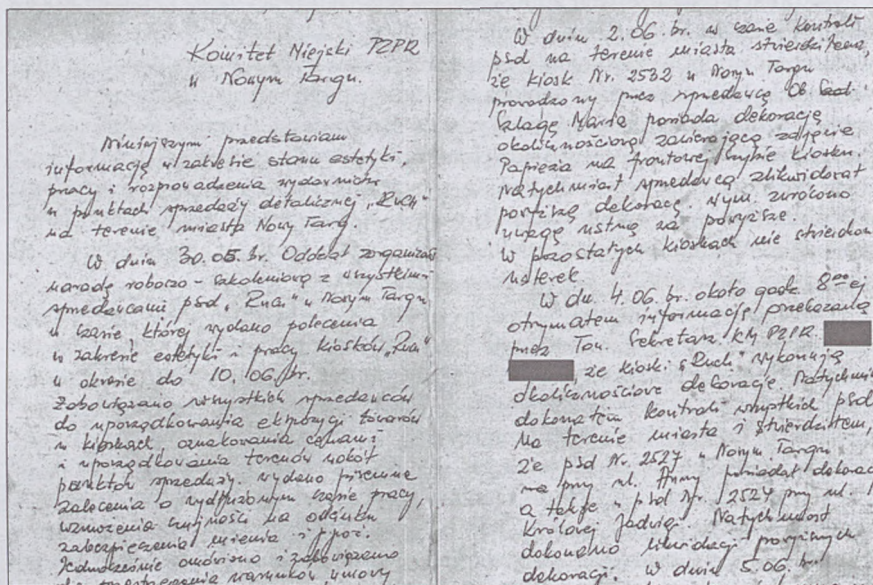 Komitet Miejski PZPR
w Nowym Targu.
Niniejszym przedstawiam
informację w zakresie stanu estetyki,
pracy i rozprowadzenia wydawnictw
w punktach sprzedaży detalicznej "Ruch"
na terenie miasta Nowy Targ.
W dniu 30.05 br. Oddział zorganizował
naradę roboczo - szkoleniową z wszystkimi
sprzedawcami psd "Ruch" w Nowym Targu
w czasie, której wydano polecenia
w zakresie estetyki i pracy kiosków "Ruch"
w okresie do 10.06 br.
Zobowiązano wszystkich sprzedawców
do uporządkowania ekspozycji towarów
w kioskach, oznakowania cenami
i uporządkowania terenów wokół
punktów sprzedaży. wydano pisemne
zalecenia o wydłużonym czasie pracy,
wzmożenia czujności na odcinku
zabezpieczenia mienia i ppoż.
Jednocześnie omówiono i zobowiązano
do przestrzegania warunków umowy
W dniu 2.06. br. w czasie kontroli
psd na terenie miasta stwierdzono,
że kiosk Nr. 2532 w Nowym Targu
prowadzony przez sprzedawcę Ob.
Szlagę Maria posiada dekorację
okolicznościową zawierającą zdjęcie
Papieża na frontowej szybie kiosku.
Natychmiast sprzedawca zlikwidował
powyższą dekorację, wym. zwrócono
uwagę ustną za powyższe.
W pozostałych kioskach nie stwierdzono
usterek
W dn. 4.06. br. około godz. 8⁰⁰ej
otrzymałem informację przekazaną
przez Tow. Sekretarz KM PZPR
, że kioski "Ruch" wykonują
okolicznościowe dekoracje. Natychmiast
dokonałem kontroli wszystkich psd
na terenie miasta i stwierdziłem,
że psd Nr. 2527 w Nowym Targu
na przy ul. Anny posiadał dekorację
a także w psd Nr. 2524 przy ul.
Królowej Jadwigi. Natychmiast
dokonano likwidacji powyższych
dekoracji. W dniu 5.06. br.